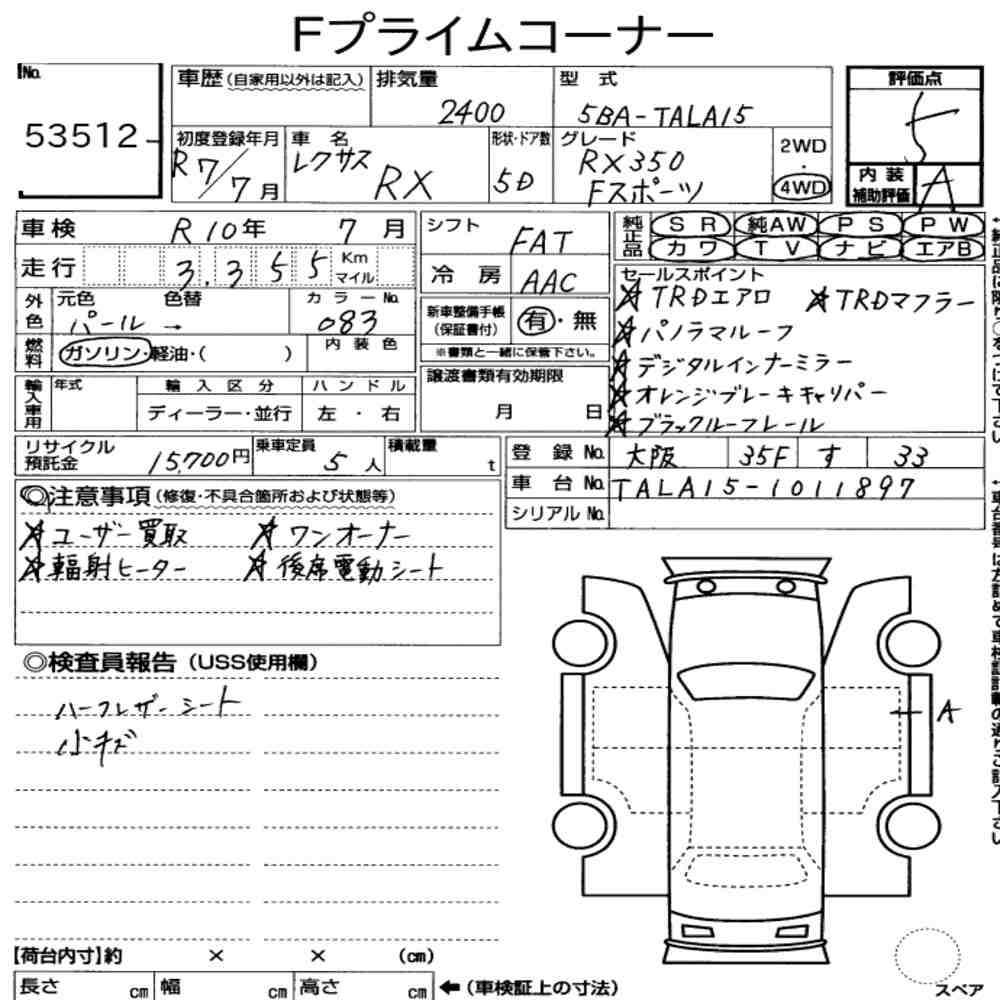 Fプライムコーナー
No.
53512
車歴(自家用以外は記入)
排気量
2400
型 式
5BA-TALA15
評価点
初度登録年月
R7/7月
車 名
レクサス
RX
形状・ドア数
5D
グレード
RX350
Fスポーツ
2WD
・
4WD
内 装
補助評価
A
車検 R10年 7月
走行 3.355 Km
マイル
外色
元色 色替
パール →
カラーNo.
083
燃料
ガソリン・軽油・( )
内 装 色
輸入車用
年式
輸 入 区 分
ディーラー・並行
ハ ン ド ル
左 ・ 右
シフト FAT
冷 房 AAC
新車整備手帳
(保証書付)
有・無
※書類と一緒に保管下さい。
譲渡書類有効期限
月 日
純正品
SR 純AW PS PW
カワ TV ナビ エアB
セールスポイント
☆TRDエアロ ☆TRDマフラー
☆パノラマルーフ
☆デジタルインナーミラー
☆オレンジブレーキキャリパー
☆ブラックルーフレール
リサイクル
預託金
15,700円
乗車定員
5人
積載量
t
登 録 No. 大阪 35F す 33
車 台 No. TALA15-1011897
シリアル No.
◎注意事項(修復・不具合箇所および状態等)
☆ユーザー買取 ☆ワンオーナー
☆輻射ヒーター ☆後席電動シート
◎検査員報告(USS使用欄)
ハーフレザーシート
小キズ
A
【荷台内寸】約 × × (cm)
長さ cm 幅 cm 高さ cm
←(車検証上の寸法)
スペア